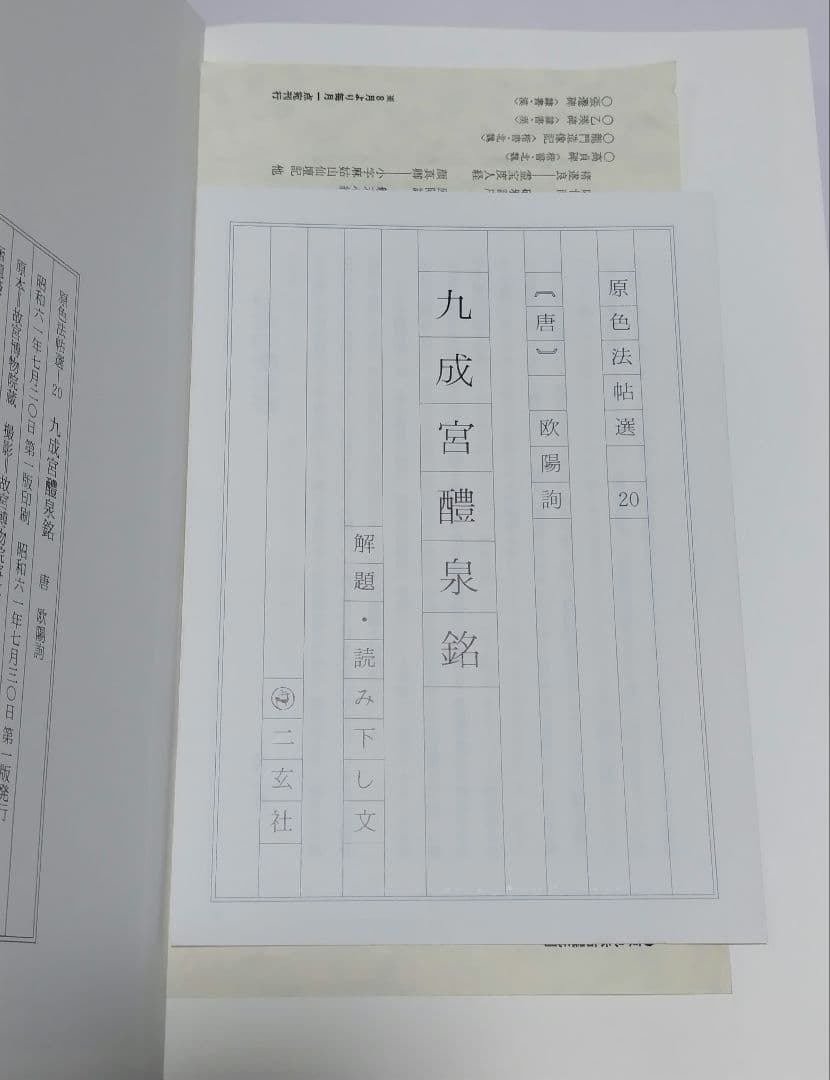 原色法帖選 20
〔唐〕 欧陽詢
九成宮醴泉銘
解題・読み下し文
二玄社
○張遷碑〈隷書・漢〉
○乙瑛碑〈隷書・漢〉
○龍門造像記〈楷書・北魏〉
○高貞碑〈楷書・北魏〉
褚遂良――霊宝度人経
顔真卿――小字麻姑山仙壇記 他
8月より毎月一点宛刊行
原色法帖選―20 九成宮醴泉銘 唐 欧陽詢
昭和六一年七月二〇日 第一版印刷 昭和六一年七月三〇日 第一版発行
原本―故宮博物院蔵 撮影―故宮博物院